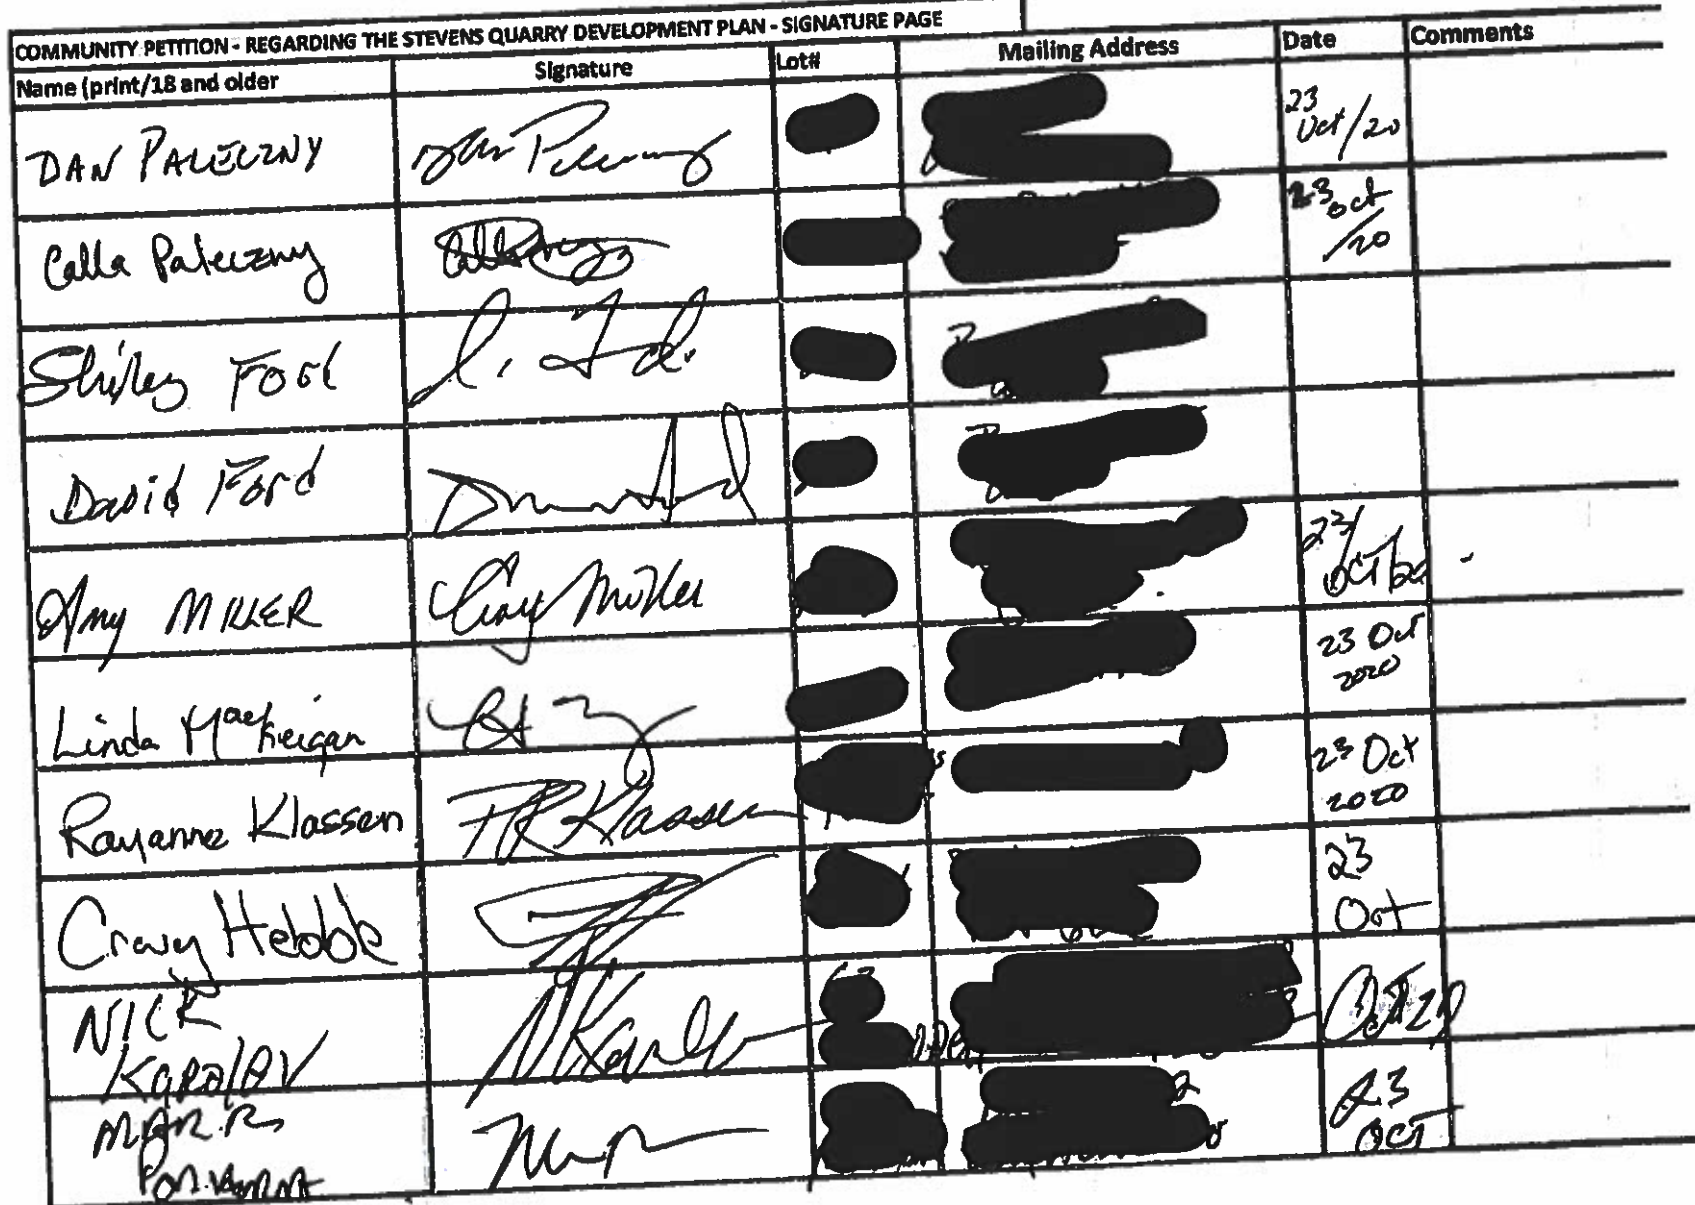 COMMUNITY PETITION - REGARDING THE STEVENS QUARRY DEVELOPMENT PLAN - SIGNATURE PAGE
Name (print/18 and older Signature Lot# Mailing Address Date Comments
DAN PALECZNY Dan Paleczny 23
Oct/20
Calla Paleczny 23 Oct
/20
Shirley Ford S. Ford
David Ford
Amy MILLER Amy Miller 23/
OCT/20
Linda MacKeigan 23 Oct
2020
Rayanne Klassen RKlassen 23 Oct
2020
Craig Hebble 23
Oct
NICK
23
OCT